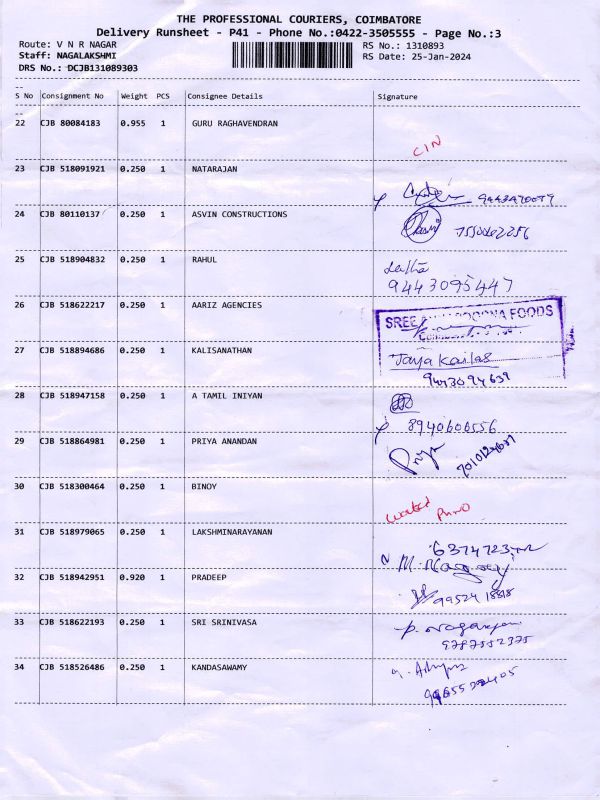 THE PROFESSIONAL COURIERS, COIMBATORE
Delivery Runsheet - P41 - Phone No.:0422-3505555 - Page No.:3
Route: V N R NAGAR
RS No.: 1310893
Staff: NAGALAKSHMI
RS Date: 25-Jan-2024
DRS No.: DCJB131089303
S No Consignment No Weight PCS Consignee Details Signature
22 CJB 80084183 0.955 1 GURU RAGHAVENDRAN
CIN
23 CJB 518091921 0.250 1 NATARAJAN
24 CJB 80110137 0.250 1 ASVIN CONSTRUCTIONS
25 CJB 518904832 0.250 1 RAHUL
Latha
9443095447
26 CJB 518622217 0.250 1 AARIZ AGENCIES
SREE FOODS
27 CJB 518894686 0.250 1 KALISANATHAN
Jaya Kailas
9443094639
28 CJB 518947158 0.250 1 A TAMIL INIYAN
8940606556
29 CJB 518864981 0.250 1 PRIYA ANANDAN
Priya
30 CJB 518300464 0.250 1 BINOY
31 CJB 518979065 0.250 1 LAKSHMINARAYANAN
32 CJB 518942951 0.920 1 PRADEEP
33 CJB 518622193 0.250 1 SRI SRINIVASA
9787552375
34 CJB 518526486 0.250 1 KANDASAWAMY